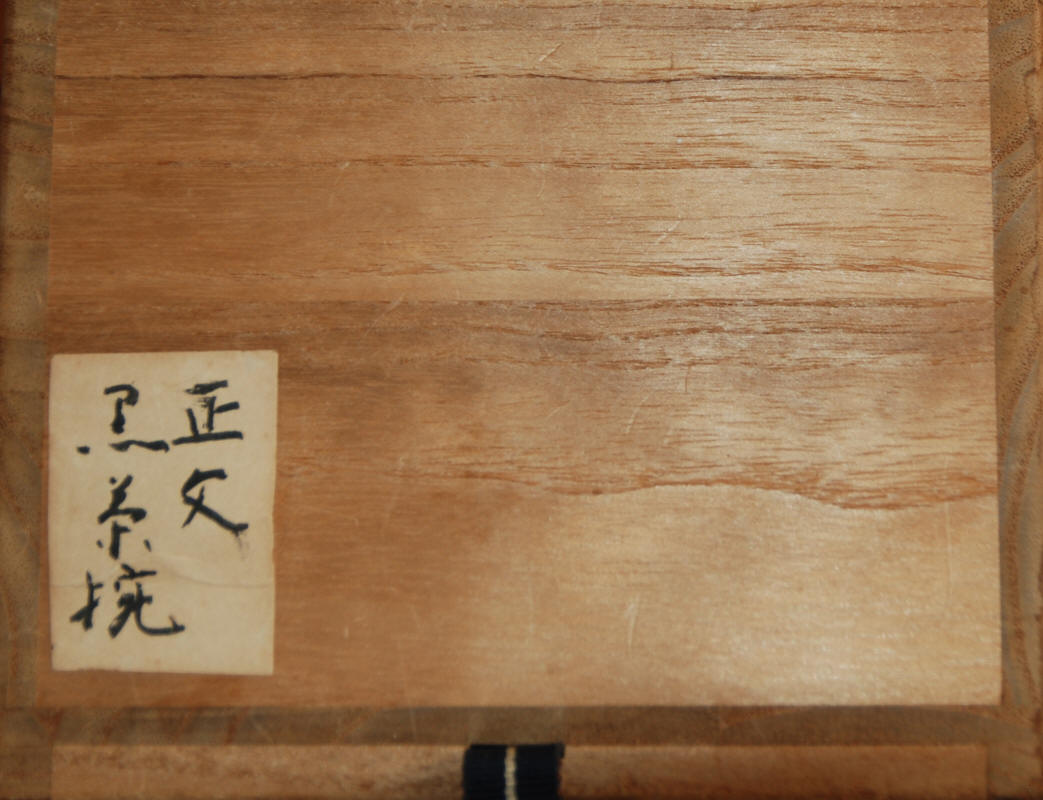 正文
黒茶椀